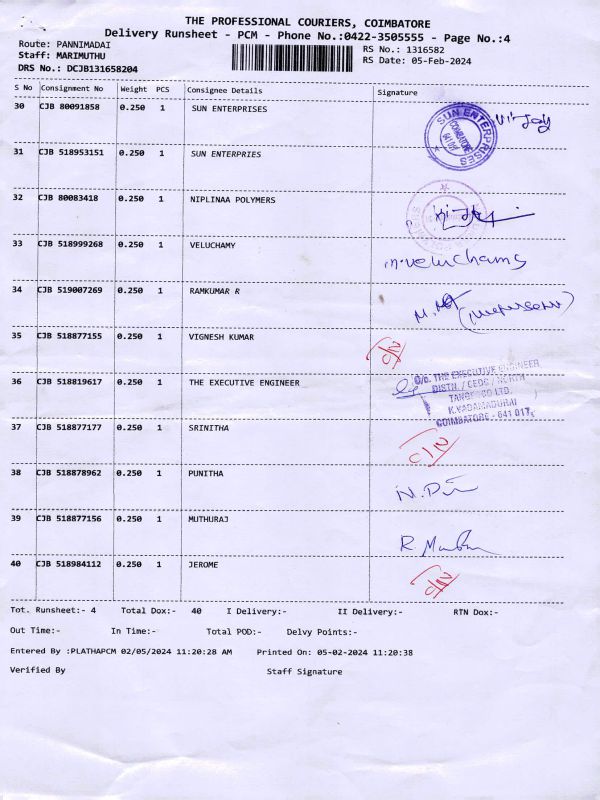 THE PROFESSIONAL COURIERS, COIMBATORE
Delivery Runsheet - PCM - Phone No.:0422-3505555 - Page No.:4
Route: PANNIMADAI
RS No.: 1316582
Staff: MARIMUTHU
RS Date: 05-Feb-2024
DRS No.: DCJB131658204
S No Consignment No Weight PCS Consignee Details Signature
30 CJB 80091858 0.250 1 SUN ENTERPRISES
SUN ENTERPRISES
31 CJB 518953151 0.250 1 SUN ENTERPRIES
32 CJB 80083418 0.250 1 NIPLINAA POLYMERS
33 CJB 518999268 0.250 1 VELUCHAMY
m.veluchams
34 CJB 519007269 0.250 1 RAMKUMAR R
35 CJB 518877155 0.250 1 VIGNESH KUMAR
36 CJB 518819617 0.250 1 THE EXECUTIVE ENGINEER
O/o. THE EXECUTIVE ENGINEER
DISTN. / CEDC / NORTH
TANGEDCO LTD.
K.VADAMADURAI
COIMBATORE - 641 017.
37 CJB 518877177 0.250 1 SRINITHA
38 CJB 518878962 0.250 1 PUNITHA
39 CJB 518877156 0.250 1 MUTHURAJ
40 CJB 518984112 0.250 1 JEROME
Tot. Runsheet:- 4 Total Dox:- 40 I Delivery:- II Delivery:- RTN Dox:-
Out Time:- In Time:- Total POD:- Delvy Points:-
Entered By :PLATHAPCM 02/05/2024 11:20:28 AM Printed On: 05-02-2024 11:20:38
Verified By Staff Signature